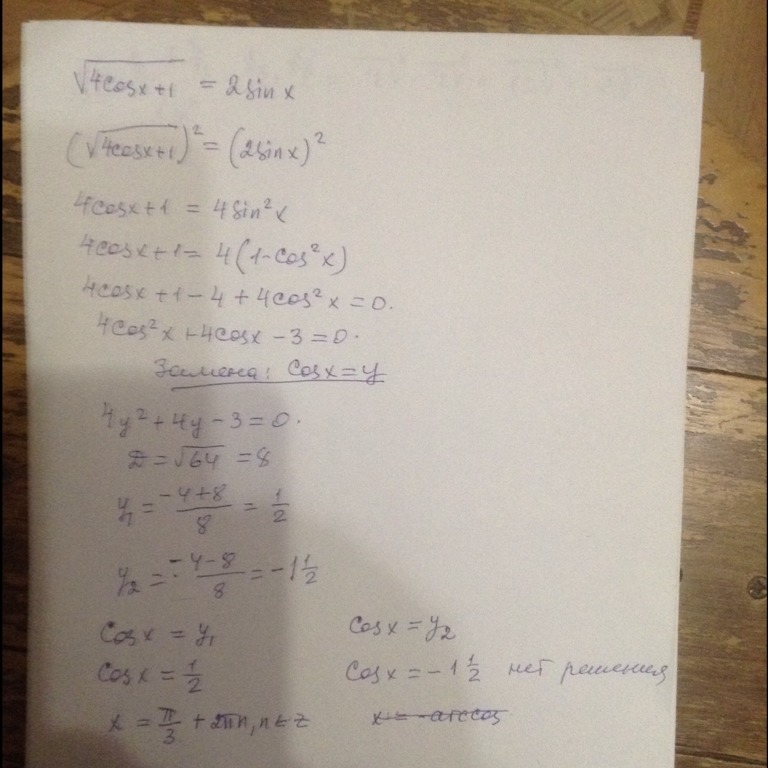 √(4cosx+1) = 2sinx
(√(4cosx+1))² = (2sinx)²
4cosx+1 = 4sin²x
4cosx+1 = 4(1-cos²x)
4cosx+1-4+4cos²x=0.
4cos²x+4cosx-3=0.
Замена: Cosx=y
4y²+4y-3=0.
D=√64 =8
y₁ = (-4+8)/8 = 1/2
y₂ = (-4-8)/8 = -1 1/2
Cosx = y₁ Cosx = y₂
Cosx = 1/2 Cosx = -1 1/2 нет решения
x = π/3 + 2πn, n∈z x = -arccos